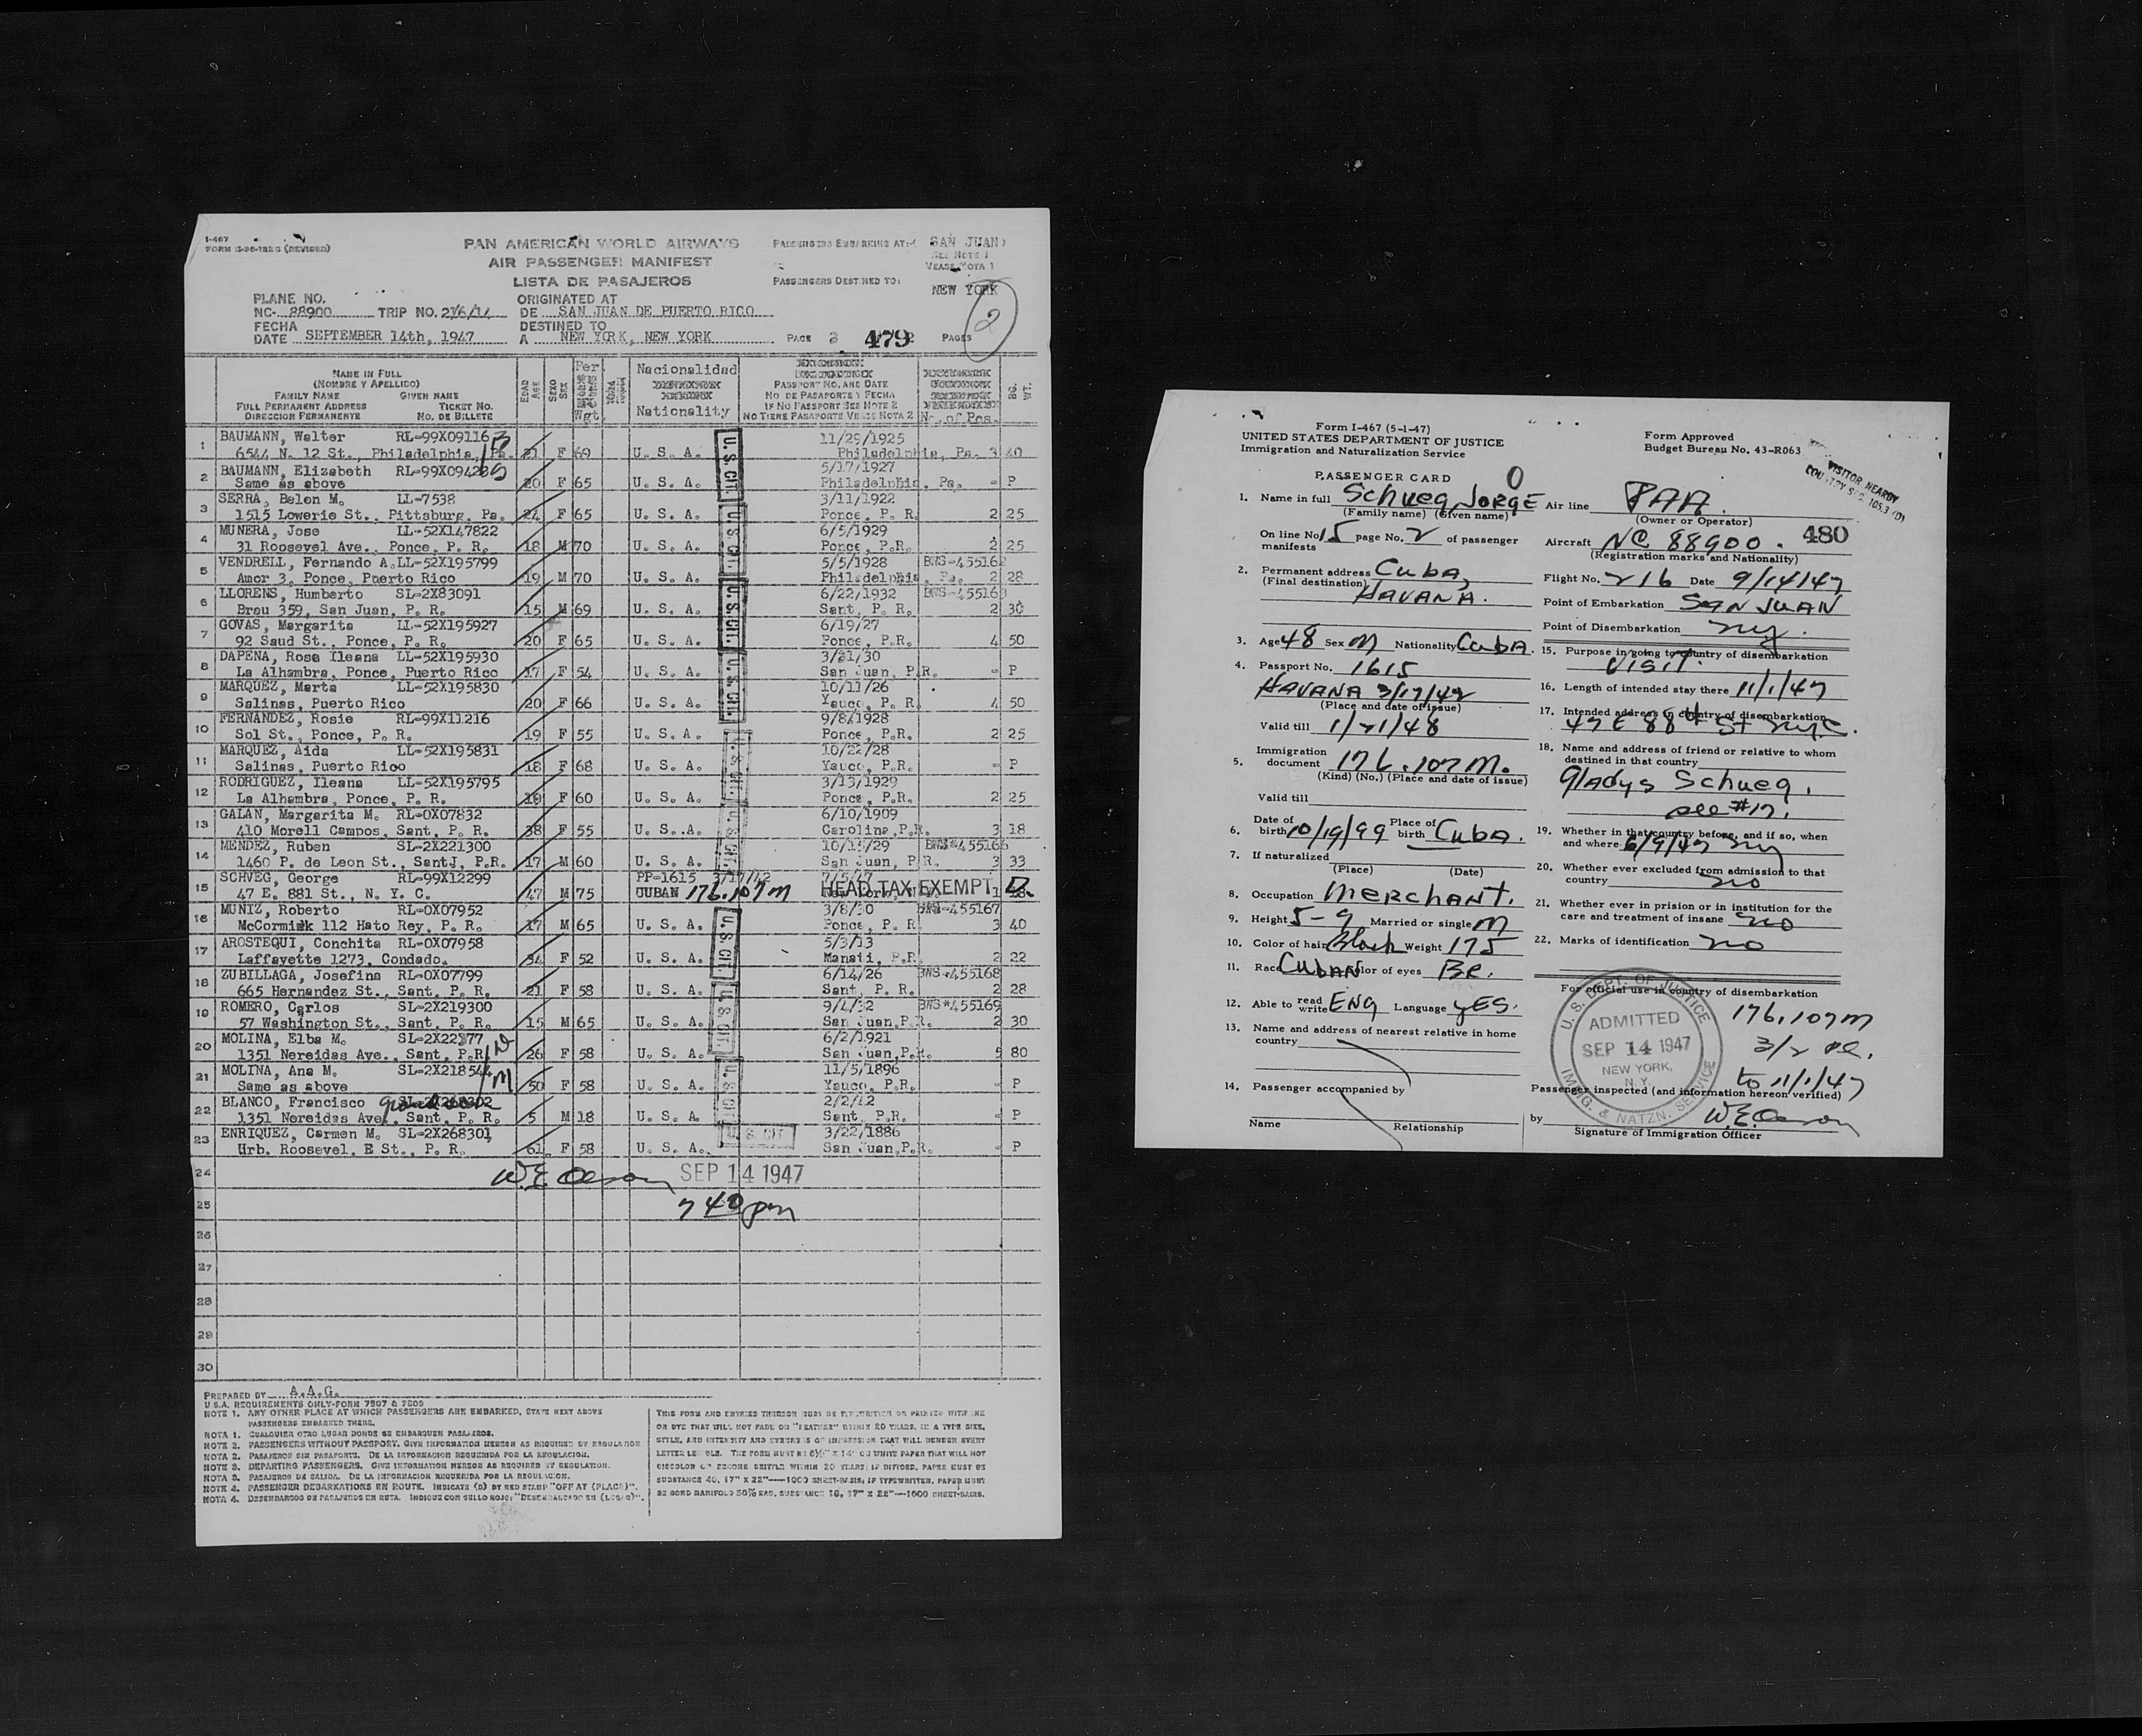 I-467
FORM (REVISED)
PAN AMERICAN WORLD AIRWAYS
AIR PASSENGER MANIFEST
LISTA DE PASAJEROS
PASSENGERS EMBARKING AT: SAN JUAN
SEE NOTE 1
PASSENGERS DESTINED TO:
NEW YORK
2
PLANE NO.
NC- 88900 TRIP NO.
ORIGINATED AT
DE SAN JUAN DE PUERTO RICO
FECHA
DATE SEPTEMBER 14th, 1947
DESTINED TO
A NEW YORK, NEW YORK
PAGE 479 PAGES
NAME IN FULL
(NOMBRE Y APELLIDO)
FAMILY NAME GIVEN NAME
FULL PERMANENT ADDRESS TICKET NO.
DIRECCION PERMANENTE NO. DE BILLETE
EDAD AGE
SEXO SEX
Per Wgt.
Nacionalidad
Nationality
PASSPORT NO. AND DATE
NO DE PASAPORTE Y FECHA
IF NO PASSPORT SEE NOTE 2
NO TIENE PASAPORTE VEASE NOTA 2
No. of Pcs.
BG. WT.
1 BAUMANN, Walter RL-99X09116 11/29/1925
6544 N. 12 St., Philadelphia, Pa. 21 F 69 U. S. A. Philadelphia, Pa. 3 40
2 BAUMANN, Elizabeth RL-99X09428 5/17/1927
Same as above 20 F 65 U. S. A. Philadelphia, Pa. - P
3 SERRA, Belen M. LL-7538 3/11/1922
1515 Lowerie St., Pittsburg, Pa. 24 F 65 U. S. A. Ponce, P. R. 2 25
4 MUNERA, Jose LL-52X147822 6/5/1929
31 Roosevel Ave., Ponce, P. R. 18 M 70 U. S. A. Ponce, P.R. 2 25
5 VENDRELL, Fernando A. LL-52X195799 5/5/1928 BWS-455162
Amor 3, Ponce, Puerto Rico 19 M 70 U. S. A. Philadelphia, Pa. 2 28
6 LLORENS, Humberto SL-2X83091 6/22/1932 BWS-45516
Brau 359, San Juan, P. R. 15 M 69 U. S. A. Sant, P. R. 2 30
7 GOVAS, Margarita LL-52X195927 6/19/27
92 Saud St., Ponce, P. R. 20 F 65 U. S. A. Ponce, P.R. 4 50
8 DAPENA, Rosa Ileana LL-52X195930 3/21/30
La Alhambra, Ponce, Puerto Rico 17 F 54 U. S. A. San Juan, P.R. - P
9 MARQUEZ, Marta LL-52X195830 10/11/26
Salinas, Puerto Rico 20 F 66 U. S. A. Yauco, P. R. 4 50
10 FERNANDEZ, Rosie RL-99X11216 9/8/1928
Sol St., Ponce, P. R. 19 F 55 U. S. A. Ponce, P.R. 2 25
11 MARQUEZ, Aida LL-52X195831 10/22/28
Salinas, Puerto Rico 18 F 68 U. S. A. Yauco, P.R. - P
12 RODRIGUEZ, Ileana LL-52X195795 3/13/1929
La Alhambra, Ponce, P. R. 18 F 60 U. S. A. Ponce, P.R. 2 25
13 GALAN, Margarita M. RL-0X07832 6/10/1909
410 Morell Campos, Sant, P. R. 38 F 55 U. S. A. Carolina, P.R. 3 18
14 MENDEZ, Ruben SL-2X221300 10/15/29 BWS*455166
1460 P. de Leon St., SantJ, P.R. 17 M 60 U. S. A. San Juan, P R. 3 33
15 SCHVEG, George RL-99X12299 PP-1615 3/17/42
47 E. 881 St., N. Y. C. 47 M 75 CUBAN 176.107M HEAD TAX EXEMPT
16 MUNIZ, Roberto RL-0X07952 3/8/30 BWS-455167
McCormiek 112 Hato Rey, P. R. 17 M 65 U. S. A. Ponce, P. R. 3 40
17 AROSTEQUI, Conchita RL-0X07958 5/3/13
Laffayette 1273, Condado. 34 F 52 U. S. A. Manati, P.R. 2 22
18 ZUBILLAGA, Josefina RL-0X07799 6/14/26 BWS-455168
665 Hernandez St., Sant, P. R. 21 F 58 U. S. A. Sant, P. R. 2 28
19 ROMERO, Carlos SL-2X219300 9/4/32 BWS*455169
57 Washington St., Sant, P. R. 15 M 65 U. S. A. San Juan, P.R. 2 30
20 MOLINA, Elba M. 6/2/1921
1351 Nereidas Ave., Sant, P.R. 26 F 58 U. S. A. San Juan, P.R. 5 80
21 MOLINA, Ana M. SL-2X218544 11/5/1896
Same as above 50 F 58 U. S. A. Yauco, P.R. - P
22 BLANCO, Francisco 2/2/42
1351 Nereidas Ave, Sant, P. R. 5 M 18 U. S. A Sant, P.R. - P
23 ENRIQUEZ, Carmen M. SL-2X268301 3/22/1886
Urb. Roosevel, E St., P. R. 61 F 58 U. S. A. San Juan, P.R. - P
U. S. CIT.
24 SEP 14 1947
25 7 40 pm
26
27
28
29
30
PREPARED BY A.A.G.
U.S.A. REQUIREMENTS ONLY-FORM 7507 & 7509
NOTE 1. ANY OTHER PLACE AT WHICH PASSENGERS ARE EMBARKED, STATE NEXT ABOVE
PASSENGERS EMBARKED THERE.
NOTA 1. CUALQUIER OTRO LUGAR DONDE SE EMBARQUEN PASAJEROS.
NOTE 2. PASSENGERS WITHOUT PASSPORT. GIVE INFORMATION HEREON AS REQUIRED BY REGULATION
NOTA 2. PASAJEROS SIN PASAPORTE. DE LA INFORMACION REQUERIDA POR LA REGULACION.
NOTE 3. DEPARTING PASSENGERS. GIVE INFORMATION HEREON AS REQUIRED BY REGULATION.
NOTA 3. PASAJEROS DE SALIDA. DE LA INFORMACION REQUERIDA POR LA REGULACION.
NOTE 4. PASSENGER DEBARKATIONS EN ROUTE. INDICATE (D) BY RED STAMP "OFF AT (PLACE)".
NOTA 4. DESEMBARCOS DE PASAJEROS EN RUTA. INDIQUE CON SELLO ROJO: "DESEMBARCADO EN (LUGAR)".
THIS FORM AND ENTRIES THEREON MUST BE TYPEWRITTEN OR PRINTED WITH INK
OR DYE THAT WILL NOT FADE OR "FEATHER" WITHIN 20 YEARS, IN A TYPE SIZE,
STYLE, AND INTENSITY AND EVENNESS OF IMPRESSION THAT WILL RENDER EVERY
LETTER LEGIBLE. THE FORM MUST BE 8½" X 14" ON WHITE PAPER THAT WILL NOT
DISCOLOR OR BECOME BRITTLE WITHIN 20 YEARS; IF DITTOED, PAPER MUST BE
SUBSTANCE 40, 17" X 22"—1000 SHEET-BASIS; IF TYPEWRITTEN, PAPER MUST
BE BOND MANIFOLD 50% RAG, SUBSTANCE 16, 17" X 22"—1000 SHEET-BASIS.
Form I-467 (5-1-47)
UNITED STATES DEPARTMENT OF JUSTICE
Immigration and Naturalization Service
Form Approved
Budget Bureau No. 43-R063
VISITOR NEARBY
PASSENGER CARD
1. Name in full Schueg, JORGE
(Family name) (Given name)
Air line PAA.
(Owner or Operator)
480
On line No. 15 page No. 2 of passenger
manifests
Aircraft NC 88900.
(Registration marks and Nationality)
2. Permanent address Cuba,
(Final destination) HAVANA.
Flight No. 216 Date 9/14/47
Point of Embarkation SAN JUAN
Point of Disembarkation ny.
3. Age 48 Sex M Nationality Cuba.
4. Passport No. 1615
HAVANA 3/17/42
(Place and date of issue)
Valid till 1/21/48
5. Immigration
document 176.107M.
(Kind) (No.) (Place and date of issue)
Valid till
6. Date of birth 10/19/99 Place of birth Cuba.
7. If naturalized
(Place) (Date)
8. Occupation MERCHANT.
9. Height 5-9 Married or single M
10. Color of hair Black Weight 175
11. Race CUBAN Color of eyes BR.
12. Able to read write ENG Language YES.
13. Name and address of nearest relative in home
country
14. Passenger accompanied by
Name Relationship
15. Purpose in going to country of disembarkation
VISIT.
16. Length of intended stay there 11/1/47
17. Intended address in country of disembarkation
47 E 88th St NYC.
18. Name and address of friend or relative to whom
destined in that country
Gladys Schueg.
see #17.
19. Whether in that country before, and if so, when
and where 6/9/47 ny
20. Whether ever excluded from admission to that
country no
21. Whether ever in prision or in institution for the
care and treatment of insane no
22. Marks of identification no
For official use in country of disembarkation
U. S. DEPT. OF JUSTICE
ADMITTED
SEP 14 1947
NEW YORK,
N. Y.
IMMIG. & NATZN. SERVICE
176.107M
3/2
to 11/1/47
Passenger inspected (and information hereon verified)
by
Signature of Immigration Officer